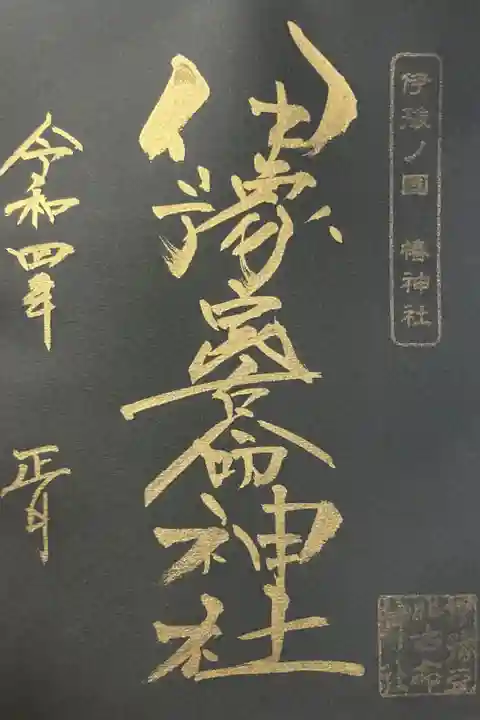 伊豫ノ國 椿神社
伊豫豆比古命神社
令和四年 正月
伊豫豆
比古命
神社